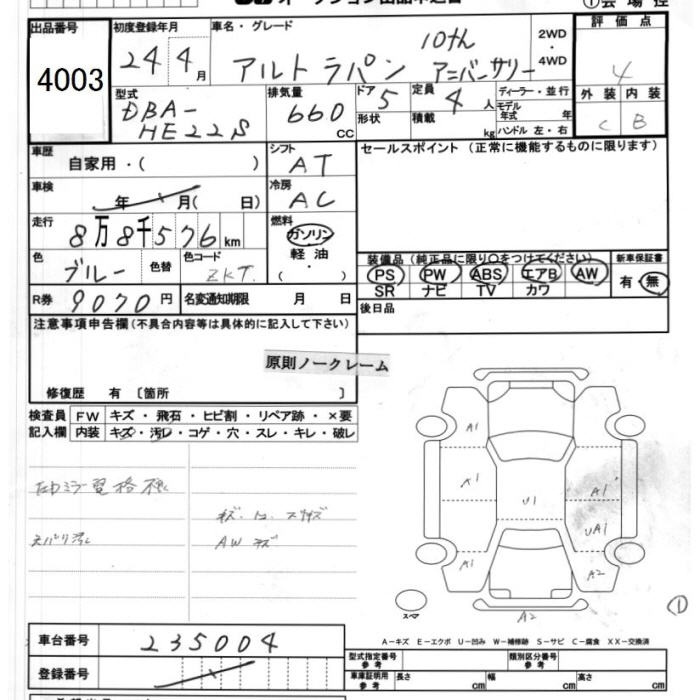 出品番号 4003
初度登録年月 24 4月
車名・グレード アルトラパン 10th アニバーサリー
2WD・4WD
評価点 4
外装 C 内装 B
型式 DBA-HE22S
排気量 660 CC
ドア 5 形状
定員 4人 積載 kg
ディーラー・並行
モデル年式 年
ハンドル 左・右
車歴 自家用・( )
シフト AT
セールスポイント(正常に機能するものに限ります)
車検 年 月( 日)
冷房 AC
走行 8万8千576km
燃料 ガソリン・軽油・( )
色 ブルー 色替 色コード ZKT
装備品(純正品に限り○をつけてください) 新車保証書
PS PW ABS エアB AW 有・無
SR ナビ TV カワ
R券 9070円 名変通知期限 月 日
後日品
注意事項申告欄(不具合内容等は具体的に記入して下さい)
原則ノークレーム
修復歴 有 〔箇所 〕
検査員 FW キズ・飛石・ヒビ割・リペア跡・×要
記入欄 内装 キズ・汚レ・コゲ・穴・スレ・キレ・破レ
AW キズ
A1
A1
A1
U1
A1
UA1
A2
A2
スペア
①
A-キズ E-エクボ U-凹み W-補修跡 S-サビ C-腐食 XX-交換済
車台番号 235004
登録番号
型式指定番号 参考 類別区分番号 参考
車庫証明用 参考 長さ cm 幅 cm 高さ cm